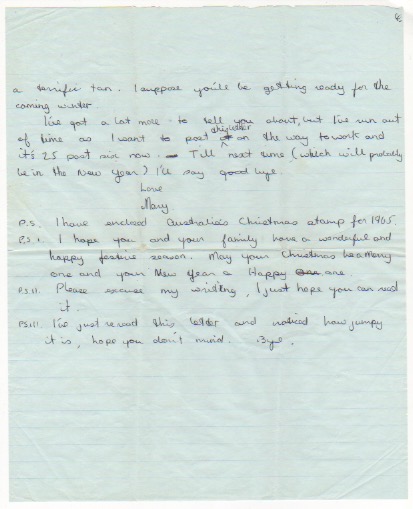 6
a terrific tan. I suppose you'll be getting ready for the
coming winter.
I've got a lot more to tell you about, but I've run out
of time as I want to post this letter on the way to work and
it's 25 past six now. — Till next time (which will probably
be in the New Year) I'll say good bye.
Love
Mary
P.S. I have enclosed Australia's Christmas stamp for 1965.
P.S.I. I hope you and your family have a wonderful and
happy festive season. May your Christmas be a Merry
one and your New Year a Happy one.
P.S.II. Please excuse my writing, I just hope you can read
it.
P.S.III. I've just reread this letter and noticed how jumpy
it is, hope you don't mind. Bye.